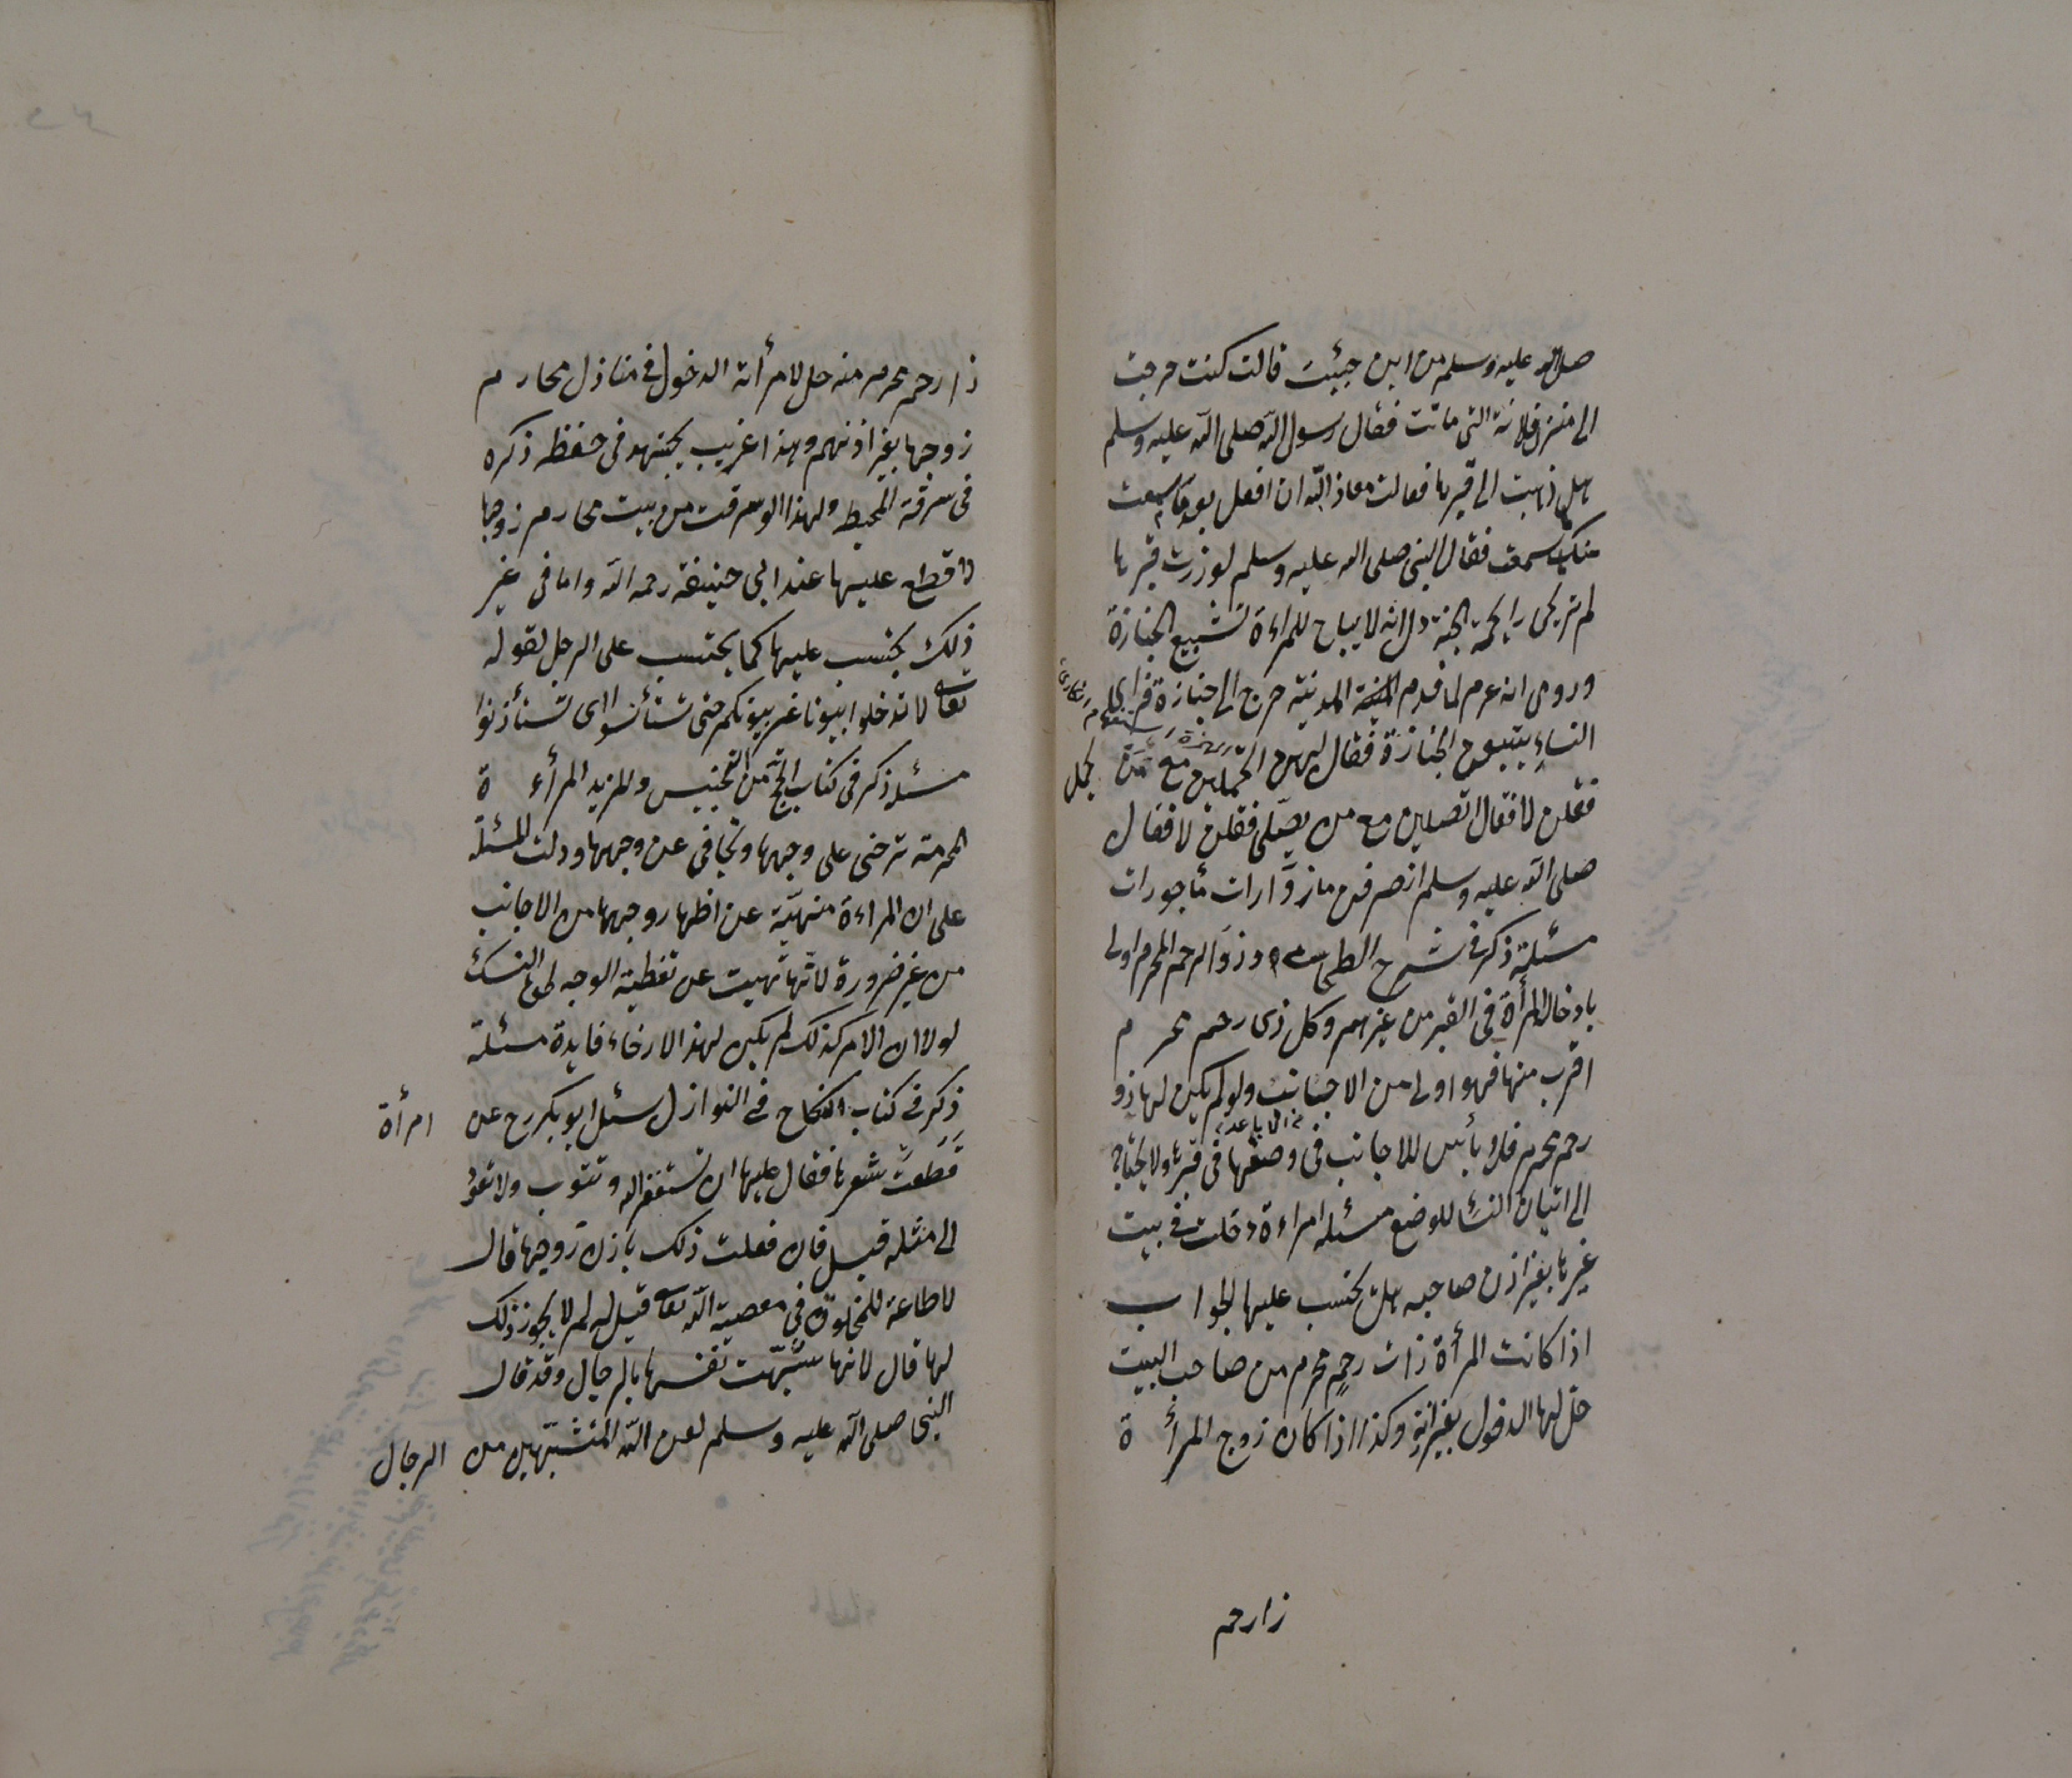 صلى الله عليه وسلم من اين جئت قالت كنت خرجت
الى منزل فلانة التى ماتت فقال رسول الله صلى الله عليه وسلم
هل ذهبت الى قبرها فقالت معاذ الله ان افعل بعد ما سمعت
منك ما سمعت فقال النبى صلى الله عليه وسلم لو زرت قبرها
لم تريحى رايحة الجنة دل انه لا يباح للمراءة تشييع الجنازة
وروى انه عرم لما قدم المدينة خرج الى جنازة فراى
النساء يتبعون الجنازة فقال لهن اتحملين مع من يحمل
فقلن لا فقال اتصلين مع من يصلى فقلن لا فقال
صلى الله عليه وسلم انصرفن مازوارات مأجورات
مسئلة ذكر فى شرح الطحاوى وذو الرحم المحرم اولى
بادخال المرأة فى القبر من غيرهم وكل ذى رحم محرم
اقرب منها فهو اولى من الاجانب ولو لم يكن لها ذو
رحم محرم فلا بأس للاجانب فى وضعها فى قبرها ولا يحتاج
الى اتيان النساء للوضع مسئله امراءة دخلت فى بيت
غيرها بغير اذن صاحبه هل يحتسب عليها الجواب
اذا كانت المرأة ذات رحم محرم من صاحب البيت
حل لها الدخول بغير اذنه وكذا اذا كان زوج المرأة
ذا رحم
ذا رحم محرم منه حل لامرأته الدخول فى منازل محارم
زوجها بغير اذنهم وهذا غريب يجتهد فى حفظه ذكره
فى سرقة المحيط ولهذا لو سرقت من بيت محارم زوجها
لا قطع عليها عند ابى حنيفة رحمه الله واما فى غير
ذلك يحتسب عليها كما يحتسب على الرجل لقوله
تعالى لا تدخلوا بيوتا غير بيوتكم حتى تستأنسوا اى تستأذنوا
مسئله ذكر فى كتاب الحج من التجنيس والمزيد المرأة
المحرمة ترخى على وجهها وتجافى عن وجهها ودلت المسئلة
على ان المراءة منهية عن اظهار وجهها من الاجانب
من غير ضرورة لانها نهيت عن تغطية الوجه لحق النسك
لولا ان الامر كذلك لم يكن لهذا الارخاء فايدة مسئلة
ذكر فى كتاب النكاح فى النوازل سئل ابو بكر رح عن امرأة
قطعت شعرها فقال عليها ان تستغفر الله وتتوب ولا تعود
الى مثله قيل فان فعلت ذلك باذن زوجها قال
لا طاعة للمخلوق فى معصية الله تعالى قيل له لم لا يجوز ذلك
لها قال لانها شبهت نفسها بالرجال وقد قال
النبى صلى الله عليه وسلم لعن الله المتشبهين من الرجال